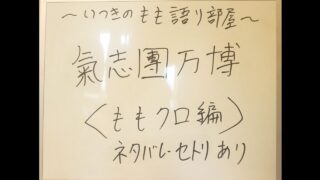 ～いつきのもも語り部屋～
氣志團万博
〈ももクロ編〉
ネタバレ・セトリあり